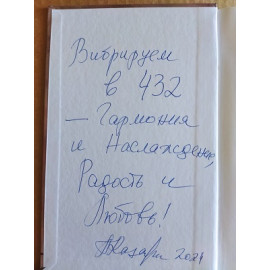 Вибрируем
в 432
— Гармония
и Наслаждение,
Радость и
Любовь!
2021